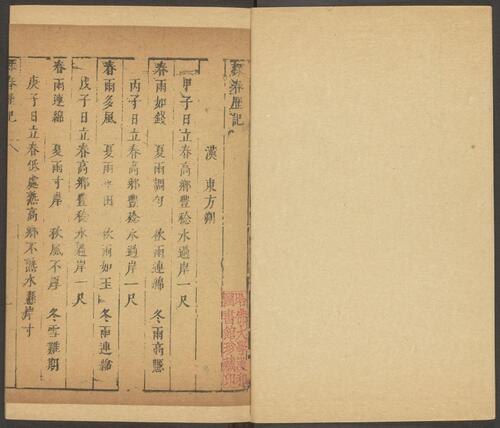 探春歷記
漢　東方朔
甲子日立春高鄉豐稔水過岸一尺
春雨如錢　夏雨調勻　秋雨連綿　冬雨高懸
丙子日立春高鄉豐稔水過岸一尺
春雨多風　夏雨　田　秋雨如玉　冬雨連綿
戊子日立春高鄉豐稔水過岸一尺
春雨連綿　夏雨寸岸　秋風不厚　冬雪難期
庚子日立春低處熟高鄉不熟水懸岸寸
探春歷記
哈佛大學漢和圖書館珍藏印